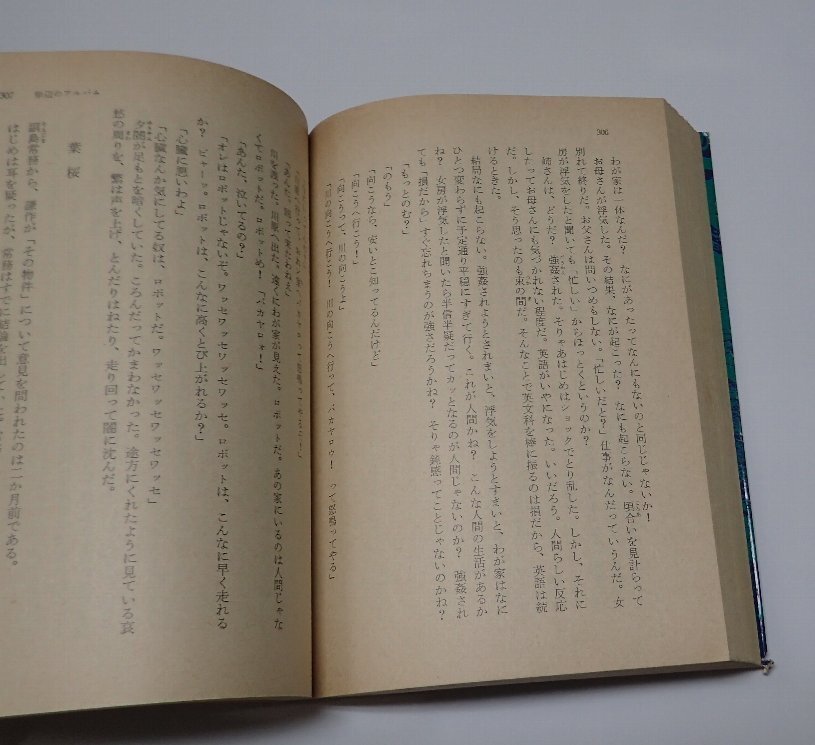 306
わが家は一体なんだ？ なにがあったってなんにもないのと同じじゃないか！
お母さんが浮気した。その結果、なにが起こった？ なにも起こらない。頃合いを見計らって
別れて終りだ。お父さんは問いつめもしない。「忙しいだと？」仕事がなんだっていうんだ。女
房が浮気をしたと聞いても「忙しい」からほっとくというのか？
姉さんは、どうだ？ 強姦された。そりゃあはじめはショックでとり乱した。しかし、それに
したってお母さんにも気づかれない程度だ。英語がいやになった。いいだろう。人間らしい反応
だ。しかし、そう思ったのも束の間だ。そんなことで英文科を棒に振るのは損だから、英語は続
けるときた。
結局なにも起こらない。強姦されようとされまいと、浮気をしようとすまいと、わが家はなに
ひとつ変わらずに予定通り平穏にすぎて行く。これが人間かね？ こんな人間の生活があるか
ね？ 女房が浮気したと聞いたら半信半疑だってカッとなるのが人間じゃないのか？ 強姦され
ても「損だから」すぐ忘れちまうのが強さだろうかね？ そりゃ鈍感ってことじゃないのかね？
「もっとのむ？」
「のもう」
「向こうなら、安いとこ知ってるんだけど」
「向こうへ行こう！」
「向こうって、川の向こうよ」
「川の向こうへ行こう！ 川の向こうへ行って、バカヤロウ！ って怒鳴ってやる」
307
岸辺のアルバム
「あんた、酔って来たわねえ」
川を渡った。川原へ出た。遠くにわが家が見えた。ロボットだ。あの家にいるのは人間じゃな
くてロボットだ。ロボットめ！ 「バカヤロォ！」
「あんた、泣いてるの？」
「オレはロボットじゃないぞ。ワッセワッセワッセワッセ。ロボットは、こんなに早く走れる
か？ ピャーッ。ロボットは、こんなに高くとび上がれるか？」
「心臓に悪いわよ」
「心臓なんか気にしてる奴は、ロボットだ。ワッセワッセワッセワッセ」
夕闇が足もとを暗くしていた。ころんだってかまわなかった。途方にくれたように見ている
愁の周りを、繁は声を上げ、とんだりはねたり、走り回って闇に沈んだ。
葉桜
副島常務から、謙作が「その物件」について意見を問われたのは二か月前である。
はじめは耳を疑ったが、常務はすでに結論を出し